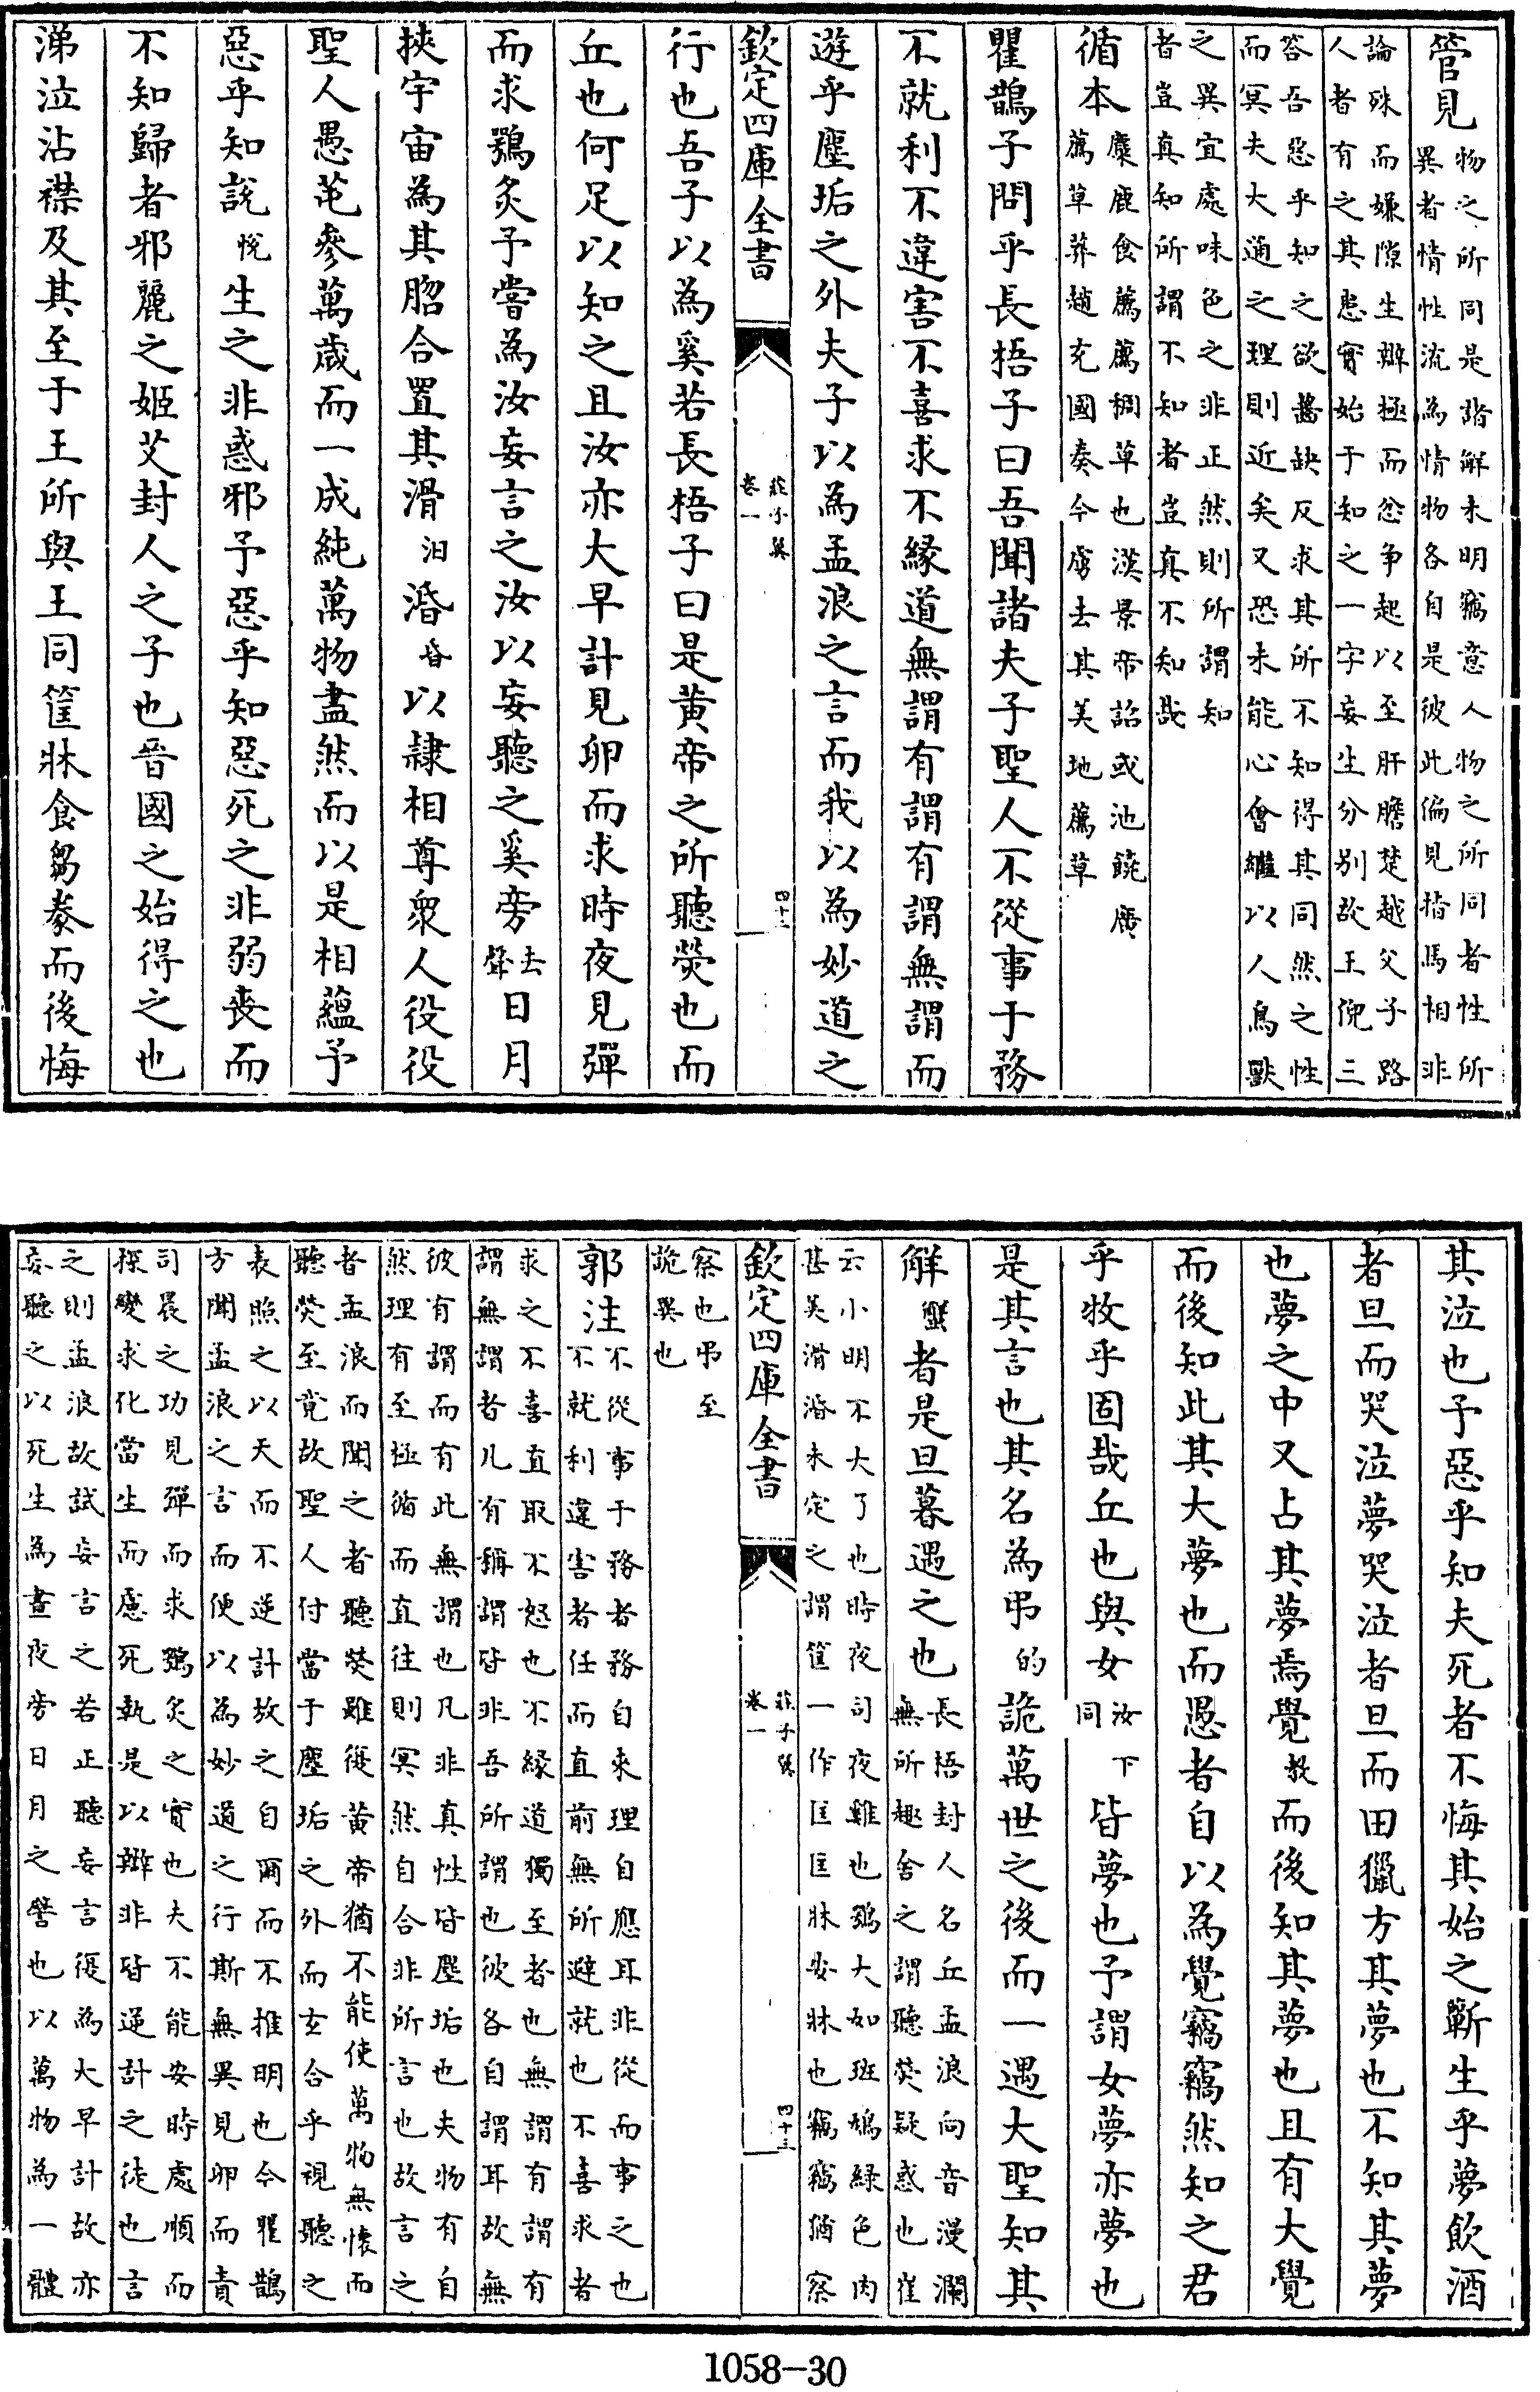 管見物之所同是諧解未明竊意人物之所同者性所
異者情性流為情物各自是彼此偏見指馬相非
論殊而嫌隙生辯極而忿争起以至肝膽楚越父子路
人者有之其患實始于知之一字妄生分别故王倪三
答吾惡乎知之欲齧缺反求其所不知得其同然之性
而冥夫大通之理則近矣又恐未能心會繼以人鳥獸
之異宜處味色之非正然則所謂知
者豈真知所謂不知者豈真不知哉
循本麋鹿食薦薦稠草也漢景帝詔或池饒廣
薦草莽趙充國奏今虜去其美地薦草
瞿鵲子問乎長梧子曰吾聞諸夫子聖人不從事于務
不就利不違害不喜求不緣道無謂有謂有謂無謂而
遊乎塵垢之外夫子以為孟浪之言而我以為妙道之
欽定四庫全書
莊子翼
卷一
四十二
行也吾子以為奚若長梧子曰是黄帝之所聽熒也而
丘也何足以知之且汝亦大早計見卵而求時夜見彈
而求鴞炙予嘗為汝妄言之汝以妄聽之奚旁去聲日月
挾宇宙為其脗合置其滑汩涽昏以隷相尊衆人役役
聖人愚芚參萬歳而一成純萬物盡然而以是相藴予
惡乎知説悅生之非惑邪予惡乎知惡死之非弱喪而
不知歸者邪麗之姬艾封人之子也晉國之始得之也
涕泣沾襟及其至于王所與王同筐牀食芻豢而後悔
其泣也予惡乎知夫死者不悔其始之蘄生乎夢飲酒
者旦而哭泣夢哭泣者旦而田獵方其夢也不知其夢
也夢之中又占其夢焉覺教而後知其夢也且有大覺
而後知此其大夢也而愚者自以為覺竊竊然知之君
乎牧乎固哉丘也與女汝下同皆夢也予謂女夢亦夢也
是其言也其名為弔的詭萬世之後而一遇大聖知其
解蟹者是旦暮遇之也長梧封人名丘孟浪向音漫瀾
無所趣舍之謂聽熒疑惑也崔
云小明不大了也時夜司夜雞也鴞大如班鳩緑色肉
甚美滑涽未定之謂筐一作匡匡牀安牀也竊竊猶察
察也弔至
詭異也
欽定四庫全書
莊子翼
卷一
四十三
郭注不從事于務者務自來理自應耳非從而事之也
不就利違害者任而直前無所避就也不喜求者
求之不喜直取不怒也不緣道獨至者也無謂有謂有
謂無謂者凡有稱謂皆非吾所謂也彼各自謂耳故無
彼有謂而有此無謂也凡非真性皆塵垢也夫物有自
然理有至極循而直往則冥然自合非所言也故言之
者孟浪而聞之者聽熒雖復黄帝猶不能使萬物無懷而
聽熒至竟故聖人付當于塵垢之外而玄合乎視聽之
表照之以天而不逆計放之自爾而不推明也今瞿鵲
方聞孟浪之言而便以為妙道之行斯無異見卵而責
司晨之功見彈而求鴞炙之實也夫不能安時處順而
探變求化當生而慮死執是以辯非皆逆計之徒也言
之則孟浪故試妄言之若正聽妄言復為大早計故亦
妄聽之以死生為晝夜旁日月之譬也以萬物為一體
1058-30